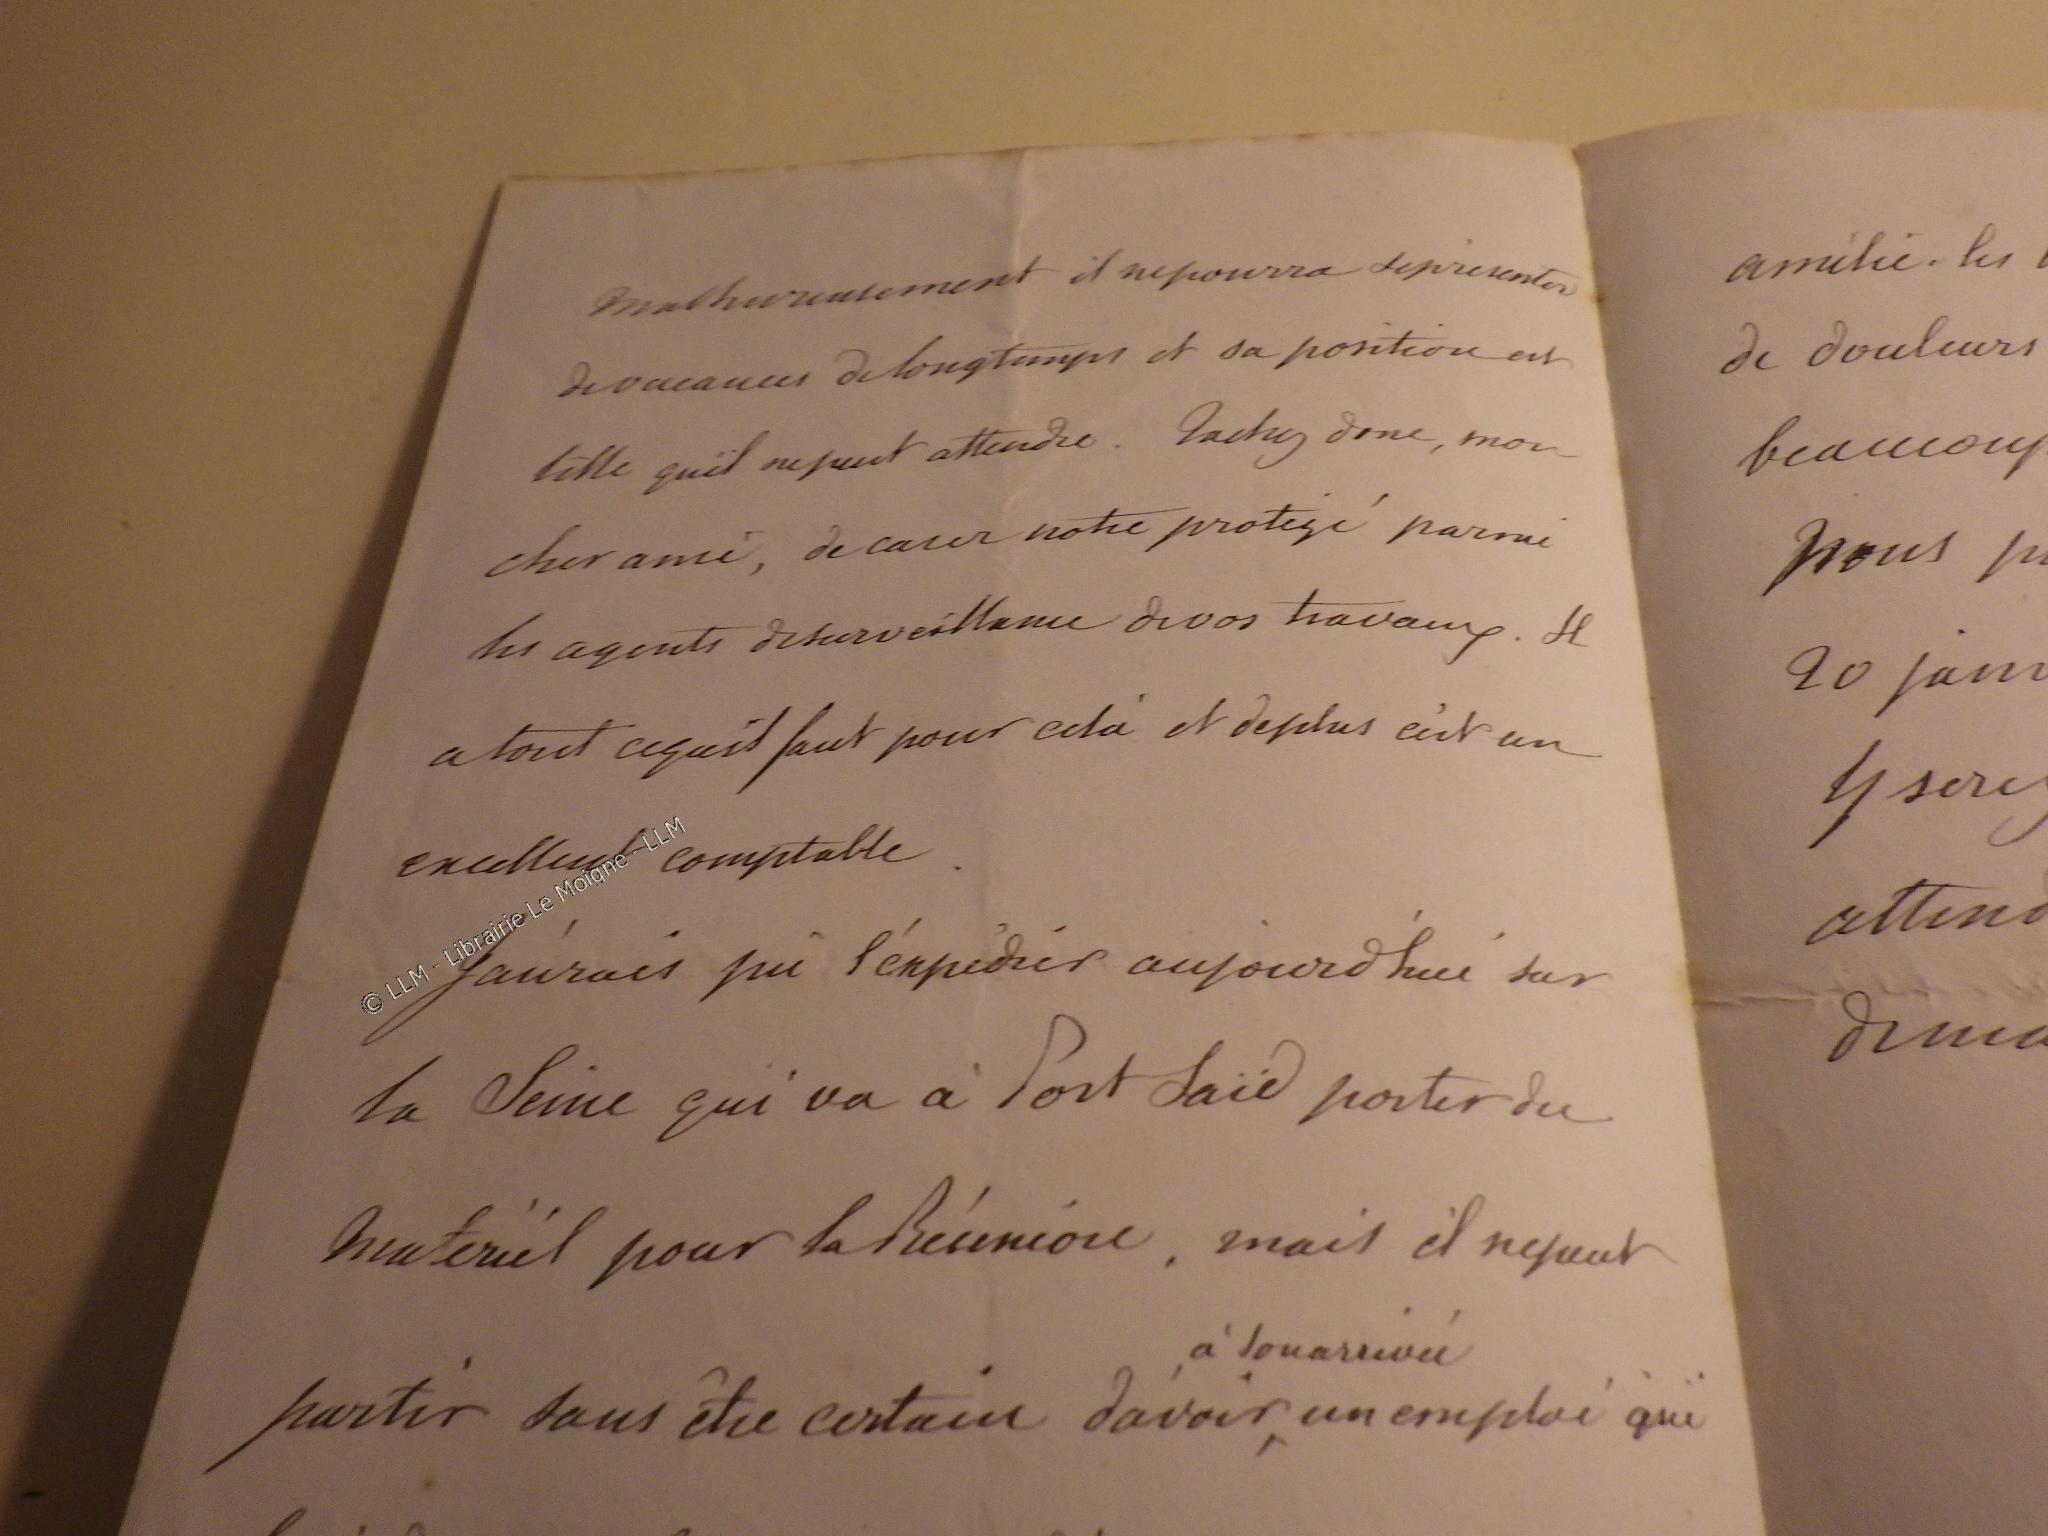 Malheureusement il ne pourra se présenter
de vacances de longtemps et sa position est
telle qu'il ne peut attendre. Tachez donc, mon
cher ami, de caser notre protégé parmi
les agents de surveillance de vos travaux. Il
a tout ce qu'il faut pour celà et de plus c'est un
excellent comptable.
J'aurais pu l'expédier aujourd'hui sur
la Seine qui va à Port Saïd porter du
matériel pour la Réunion, mais il ne peut
à son arrivée
partir sans être certain d'avoir un emploi qui
amélie. les
de douleurs
beaucoup
Nous
20 jan
Y serez
attend
© LLM - Librairie Le Moigne - LLM